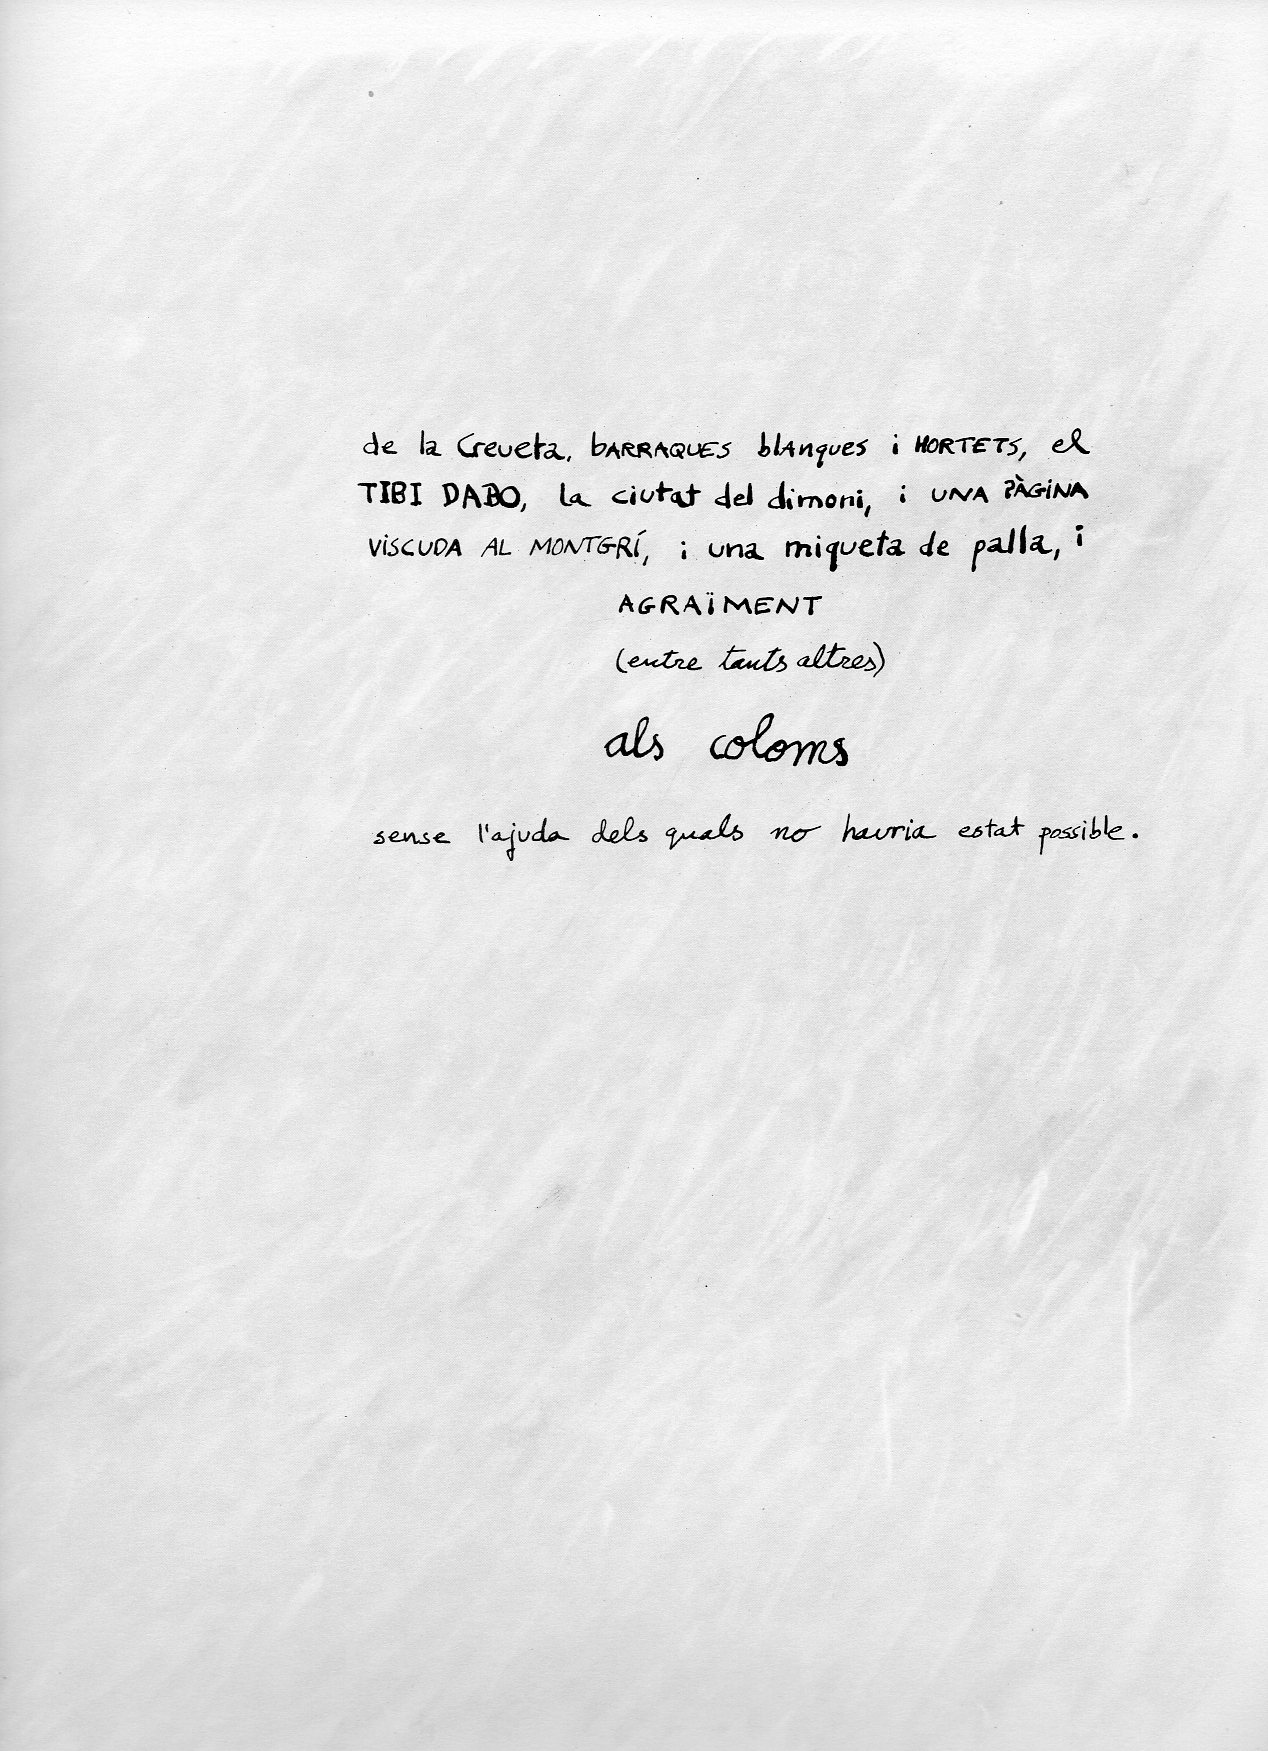 de la Creueta, bARRAQUES blAnques i HORTETS, el
TIBI DABO, la ciutat del dimoni, i UNA PÀGiNA
ViSCUDA AL MONTGRÍ, i una miqueta de palla, i
AGRAÏMENT
(entre tants altres)
als coloms
sense l'ajuda dels quals no hauria estat possible.